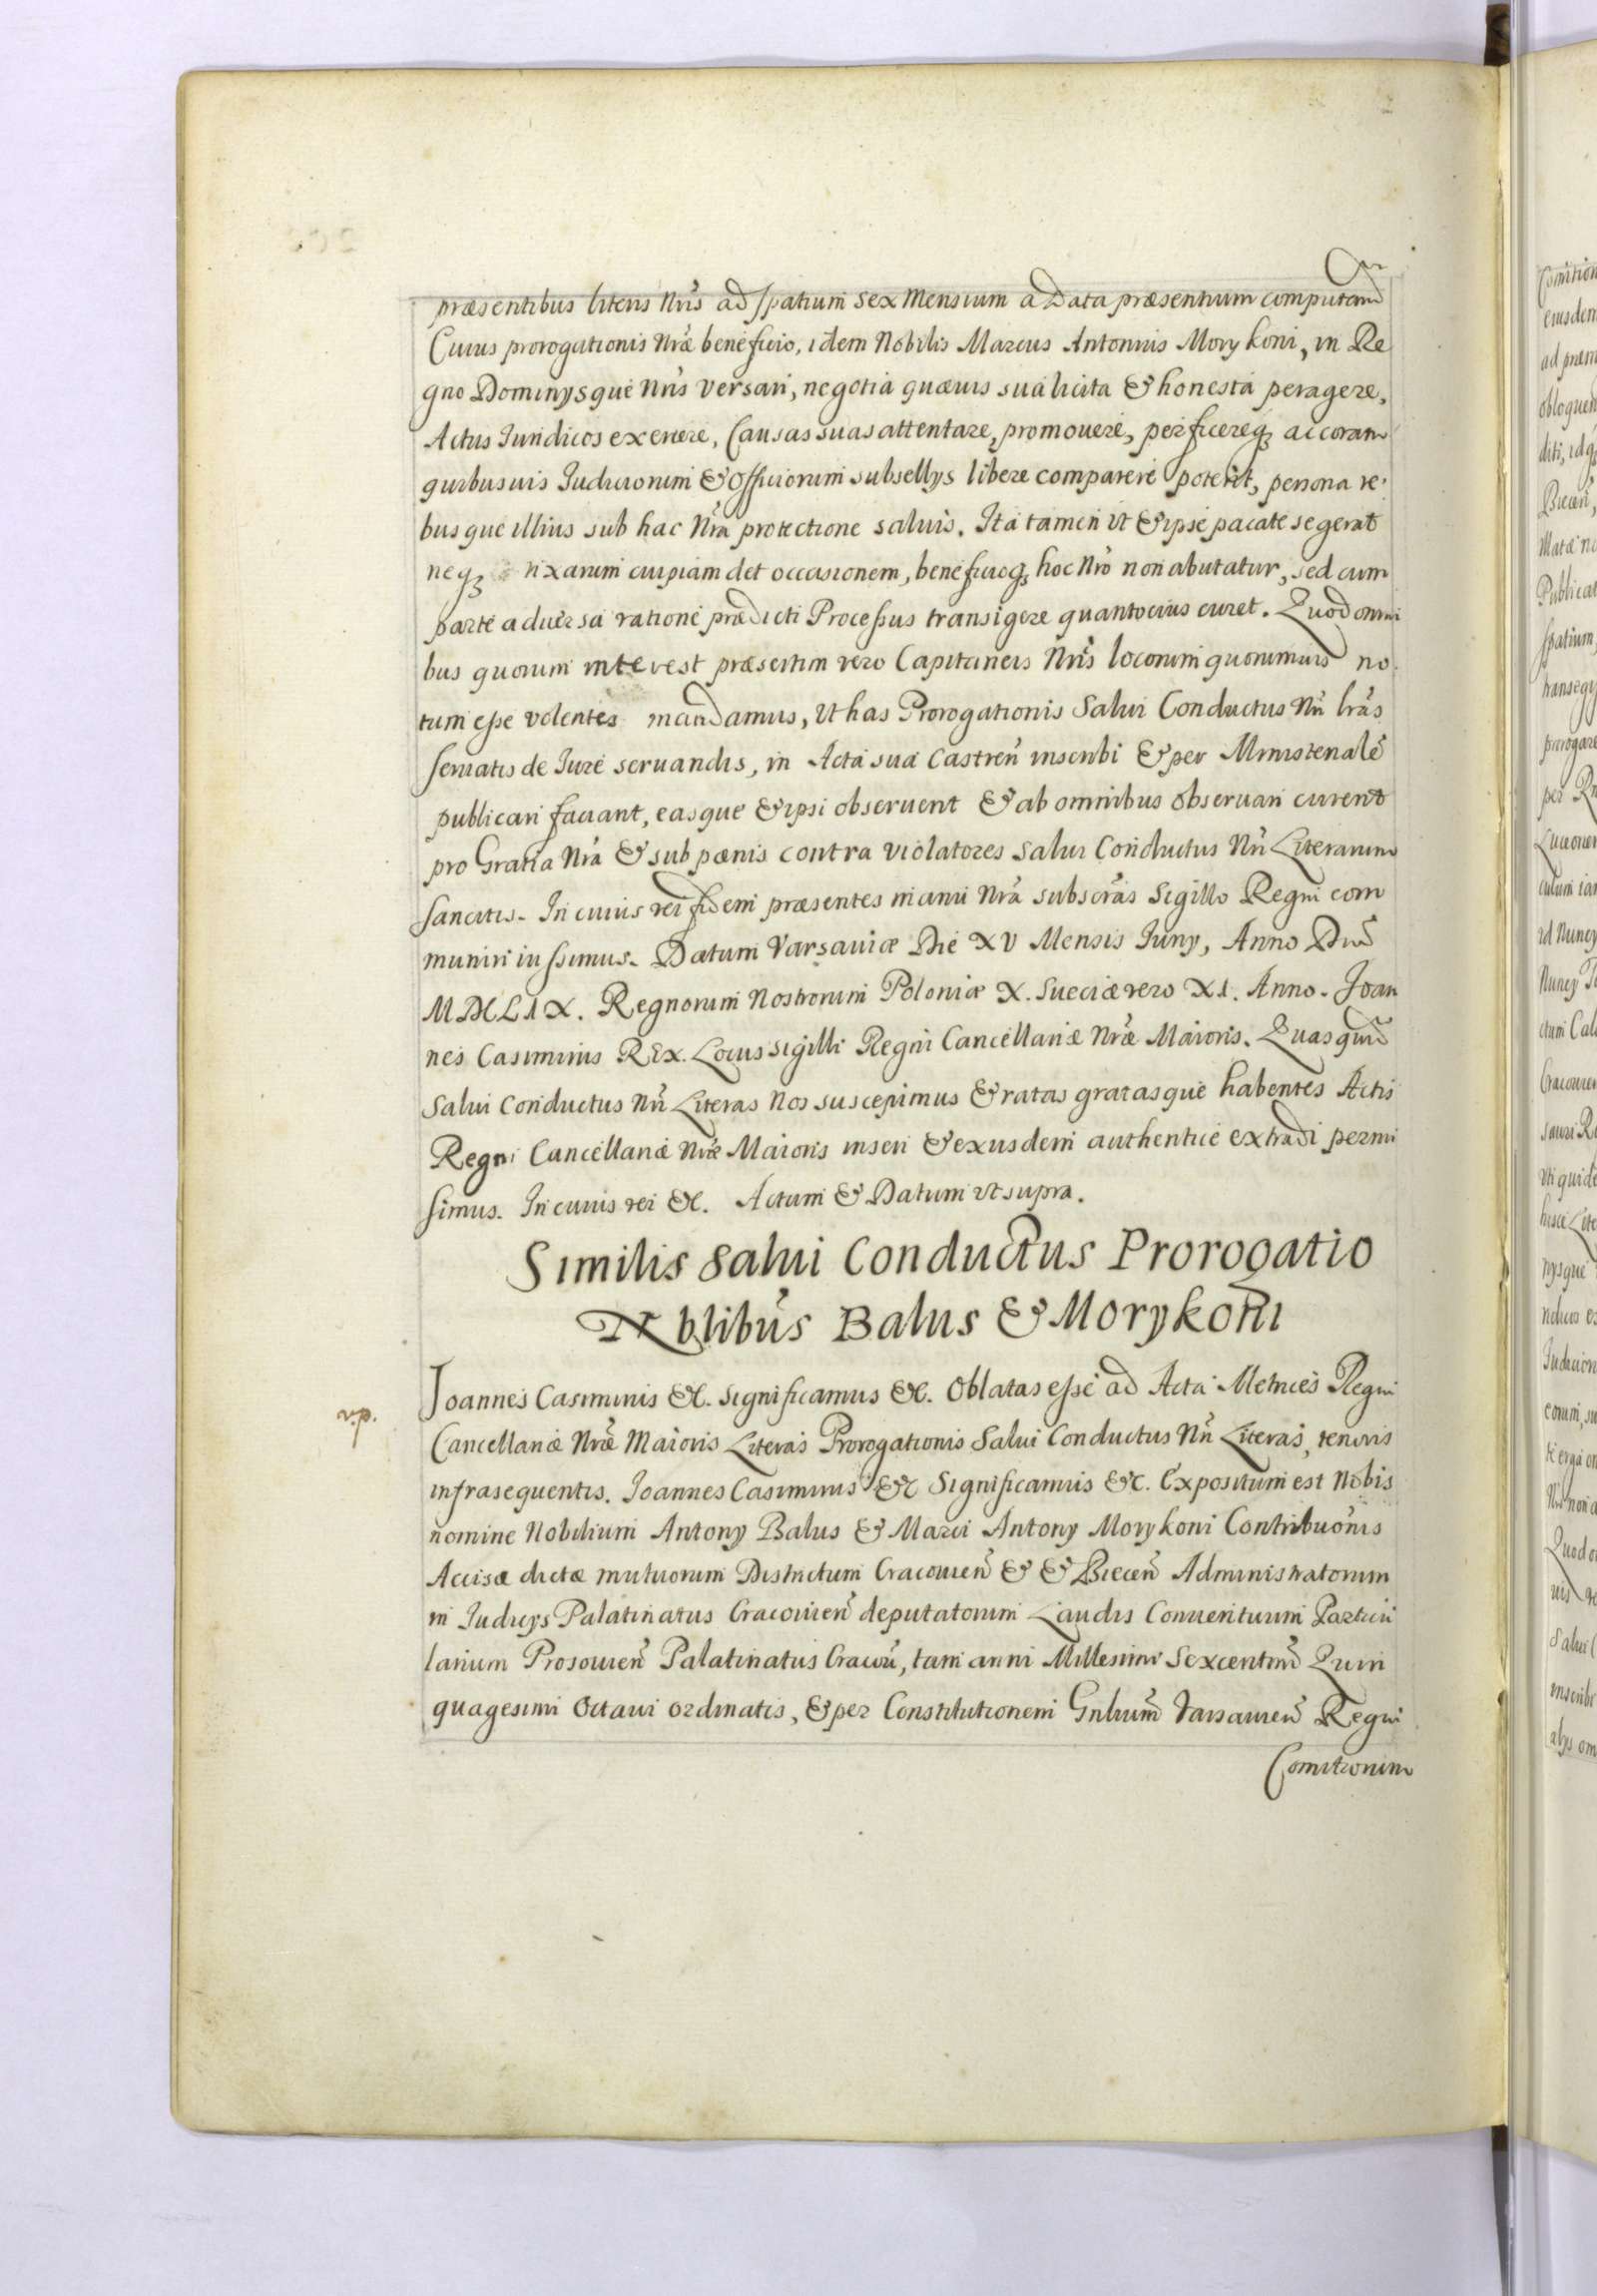 præsentibus literis Nris ad spatium sex Mensium a Data præsentium computand
Cuius prorogationis Nræ beneficio, idem Nobilis Marcus Antonius Morykoni, in Re
gno Dominysque Nris versari, negotia quævis sua licita & honesta peragere,
Actus Iuridicos exercere, Causas suas attentare, promouere, perficereq; ac coram
quibusuis Iudiciorum & Officiorum subsellys libere comparere poterit, persona re:
busque illius sub hac Nra protectione saluis. Ita tamen ut & ipse pacate se gerat
neq; rixarum cuipiam det occasionem, beneficioq; hoc Nro non abutatur, sed cum
parte aduersa ratione prædicti Processus transigere quantocius curet. Quod omni
bus quorum interest præsertim vero Capitaneis Nris locorum quorumuis no
tum esse volentes mandamus, ut has Prorogationis Salui Conductus Nri lras
seruatis de Iure seruandis, in Acta sua Castren inscribi & per Ministerialē
publicari faciant, easque & ipsi obseruent & ab omnibus obseruari curent
pro Gratia Nra & sub pænis contra violatores Salui Conductus Nri Literarum
sancitis. In cuius rei fidem præsentes manu Nra subscras Sigillo Regni com
muniri iussimus. Datum Varsauiæ Die XV Mensis Iuny, Anno Dni
MDCLIX. Regnorum Nostrorum Poloniæ X. Sueciæ vero XI. Anno. Joan
nes Casimirus REX. Locus sigilli Regni Cancellariæ Nræ Maioris. Quasquid
Salui Conductus Nri Literas Nos suscepimus & ratas gratasque habentes Actis
Regni Cancellariæ Nræ Maioris inseri & ex iisdem authentice extradi permi
simus. In cuius rei &c. Actum & Datum ut supra.
Similis Salui Conductus Prorogatio
Nblibus Balus & Morykoni
v.p.
Joannes Casimirus &c. Significamus &c. Oblatas esse ad Acta Metrices Regni
Cancellariæ Nræ Maioris Literas Prorogationis Salui Conductus Nri Literas, tenoris
infrasequentis. Joannes Casimirus &c Significamus &c. Expositum est Nobis
nomine Nobilium Antony Balus & Marci Antony Morykoni Contribuonis
Accisæ dictæ mutuorum Districtum Cracouien & & Biecen Administratorum
in Iudicys Palatinatus Cracouien deputatorum Laudis Conuentuum Particu
larium Prosouien Palatinatus Cracou, tam anni Millesimi Sexcentmi Quin
quagesimi Octaui ordinatis, & per Constitutionem Gnlium Varsauien Regni
Comitiorum